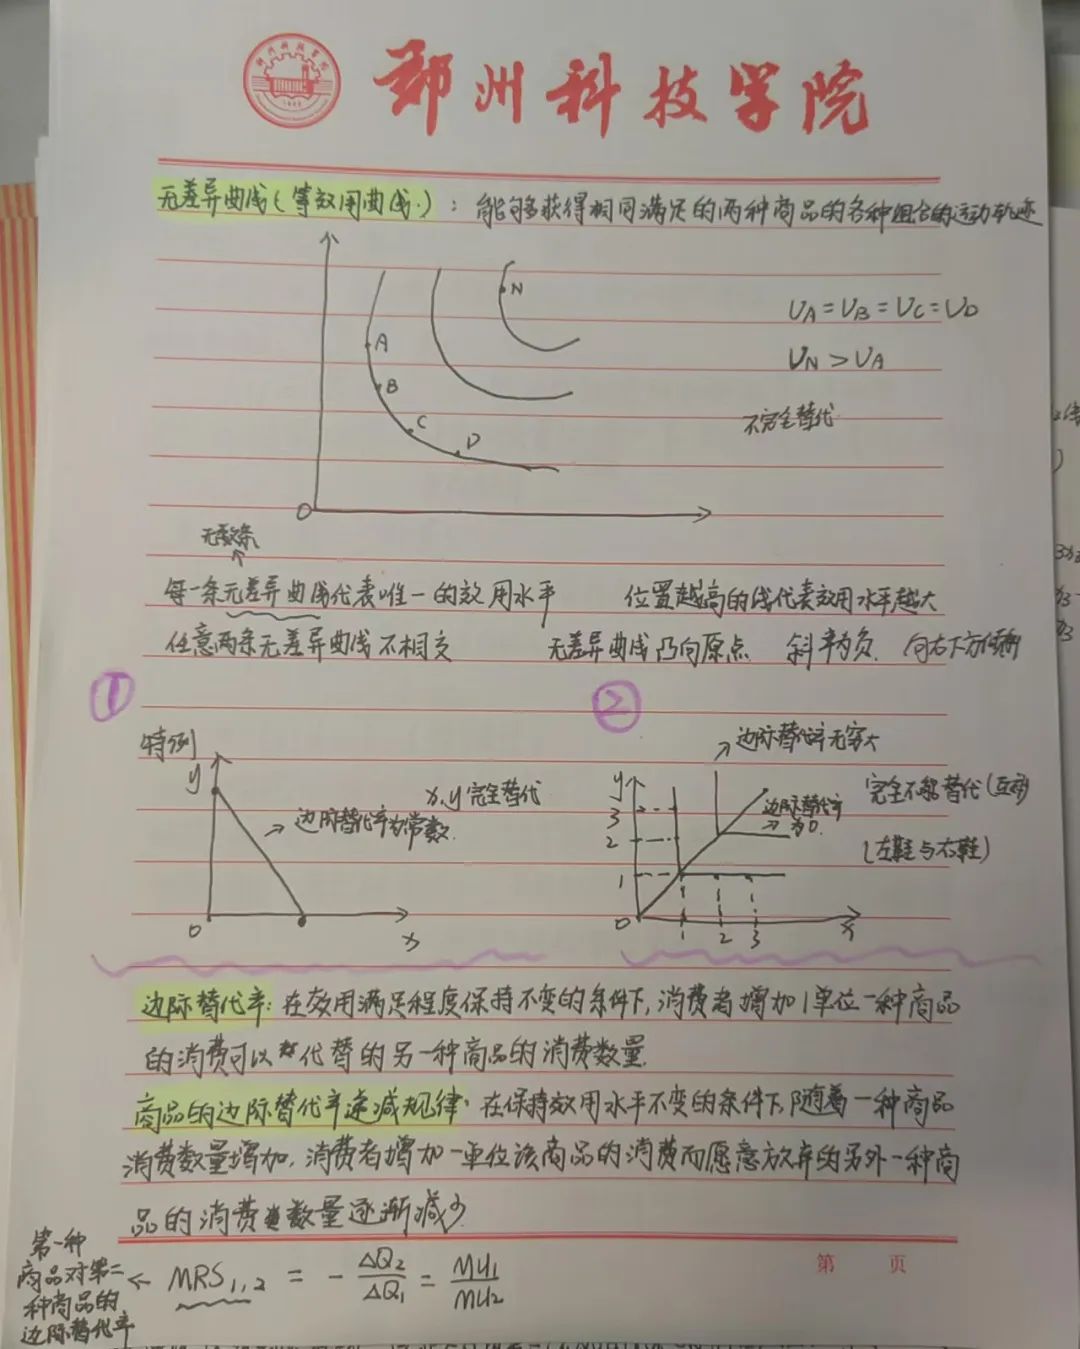 郑州科技学院
无差异曲线(等效用曲线.)：能够获得相同满足的两种商品的各种组合的运动轨迹
N
A
B
C
D
O
UA=UB=UC=UD
UN>UA
不完全替代
无数条
每一条无差异曲线代表唯一的效用水平 位置越高的线代表效用水平越大
任意两条无差异曲线不相交 无差异曲线凸向原点 斜率为负 向右下方倾斜
①
特例
y
x,y完全替代
→边际替代率为常数.
O
x
②
边际替代率无穷大
y
3
2
1
O
1 2 3
x
边际替代率
→为0
完全不能替代(互补)
(左鞋与右鞋)
边际替代率:在效用满足程度保持不变的条件下,消费者增加1单位一种商品
的消费可以代替的另一种商品的消费数量.
商品的边际替代率递减规律:在保持效用水平不变的条件下,随着一种商品
消费数量增加,消费者增加一单位该商品的消费而愿意放弃的另外一种商
品的消费数量逐渐减少
第一种
商品对第二
种商品的
边际替代率
← MRS1,2 = -ΔQ2/ΔQ1 = MU1/MU2
第 页